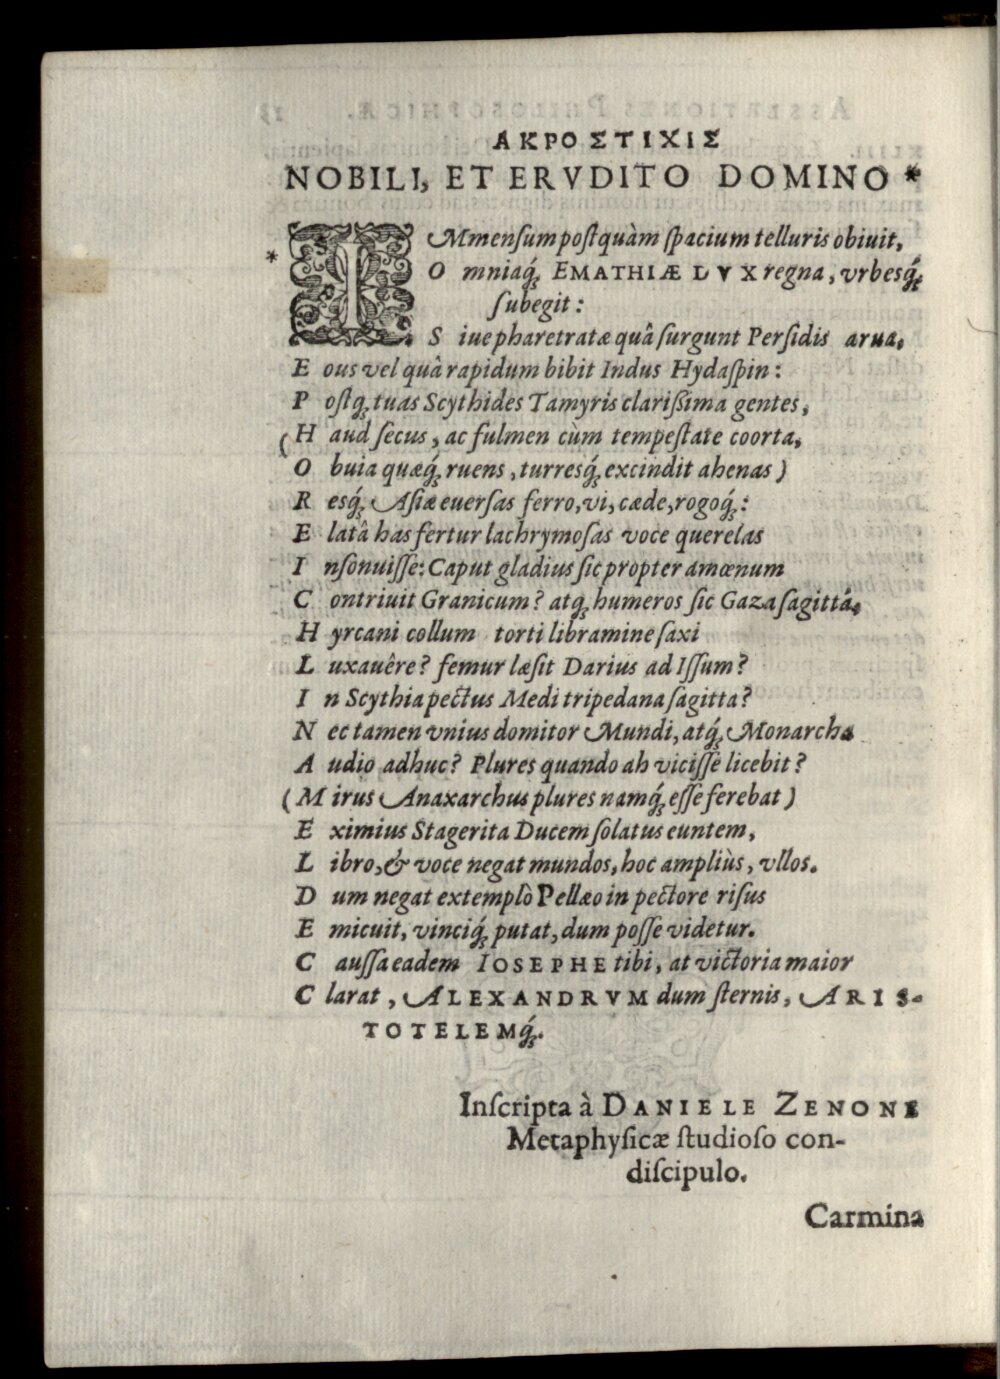 ΑΚΡΟΣΤΙΧΙΣ
NOBILI, ET ERVDITO DOMINO *
* IMmenſum poſtquàm ſpacium telluris obiuit,
O mniaq́; EMATHIÆ DVX regna, vrbesq́;
ſubegit:
S iue pharetratæ quâ ſurgunt Perſidis arua,
E ous vel quâ rapidum bibit Indus Hydaſpin:
P oſtq; tuas Scythides Tamyris clariſſima gentes,
(H aud ſecus, ac fulmen cùm tempeſtate coorta,
O buia quæq́; ruens, turresq́; excindit ahenas)
R esq́; Aſiæ euerſas ferro, vi, cæde, rogoq́;:
E latâ has fertur lachrymoſas voce querelas
I nſonuiſſe: Caput gladius ſic propter amœnum
C ontriuit Granicum? atq; humeros ſic Gaza ſagittâ,
H yrcani collum torti libramine ſaxi
L uxauêre? femur læſit Darius ad Iſſum?
I n Scythia pectus Medi tripedana ſagitta?
N ec tamen vnius domitor Mundi, atq́; Monarcha
A udio adhuc? Plures quando ah viciſſe licebit?
(M irus Anaxarchus plures namq́; eſſe ferebat)
E ximius Stagerita Ducem ſolatus euntem,
L ibro, & voce negat mundos, hoc ampliùs, vllos.
D um negat extemplò Pellæo in pectore riſus
E micuit, vinciq́; putat, dum poſſe videtur.
C auſſa eadem IOSEPHE tibi, at victoria maior
C larat, ALEXANDRVM dum ſternis, ARIS-
TOTELEMq́;.
Inſcripta à DANIELE ZENONE
Metaphyſicæ ſtudioſo con-
diſcipulo.
Carmina